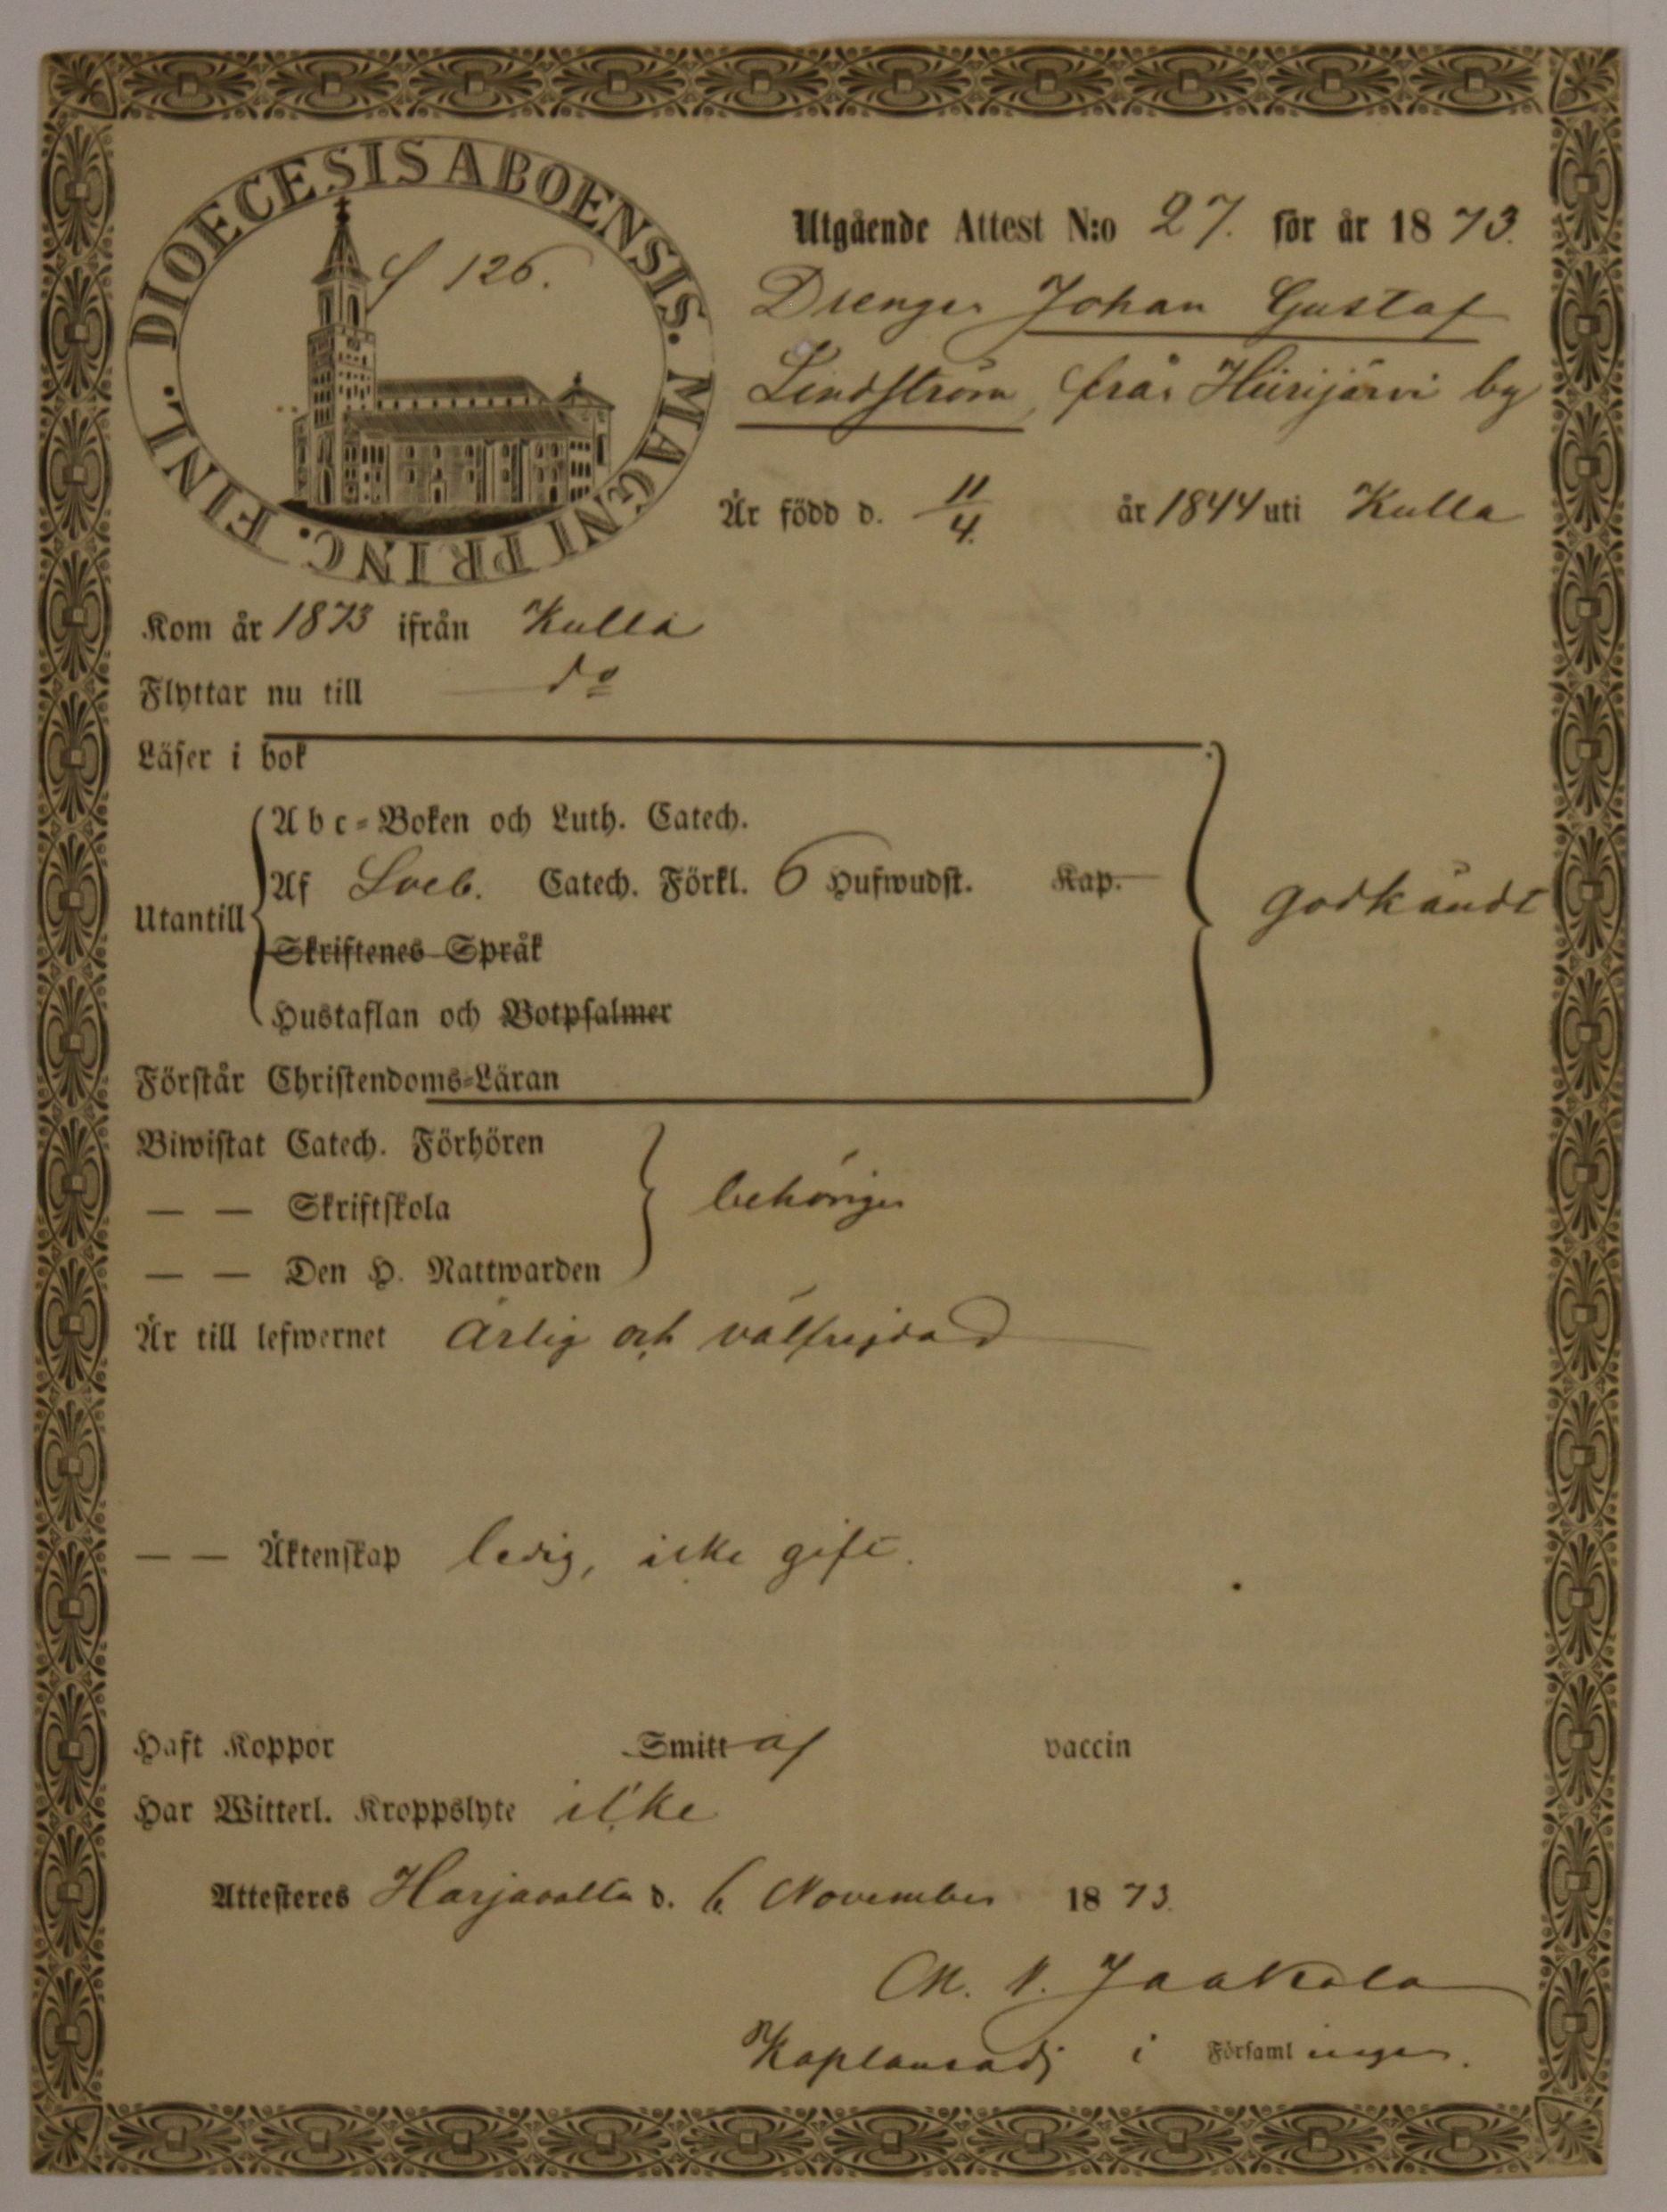 DIOECESIS ABOENSIS. MAGNI PRINC. FINL.
S 126.
Utgående Attest N:o 27. för år 1873.
Drengen Johan Gustaf
Lindström, från Hiirijärvi by
Är född d. 11/4. år 1844 uti Kulla
Kom år 1873 ifrån Kulla
Flyttar nu till do
Läser i bok
Abc-Boken och Luth. Catech.
Af Sveb. Catech. Förkl. 6 Hufwudst. Kap.
godkändt
Utantill
Skriftenes Språk
Hustaflan och Botpsalmer
Förstår Christendoms-Läran
Biwistat Catech. Förhören
— — Skriftskola
behörigen
— — Den H. Nattwarden
Är till lefwernet ärlig och välfrejdad
— — Äktenskap ledig, icke gift.
Haft Koppor Smitt af vaccin
Har Witterl. Kroppslyte icke
Attesteres Harjavalta d. 6 November 1873.
Jaakola
Kaplansadj i Församlingen.